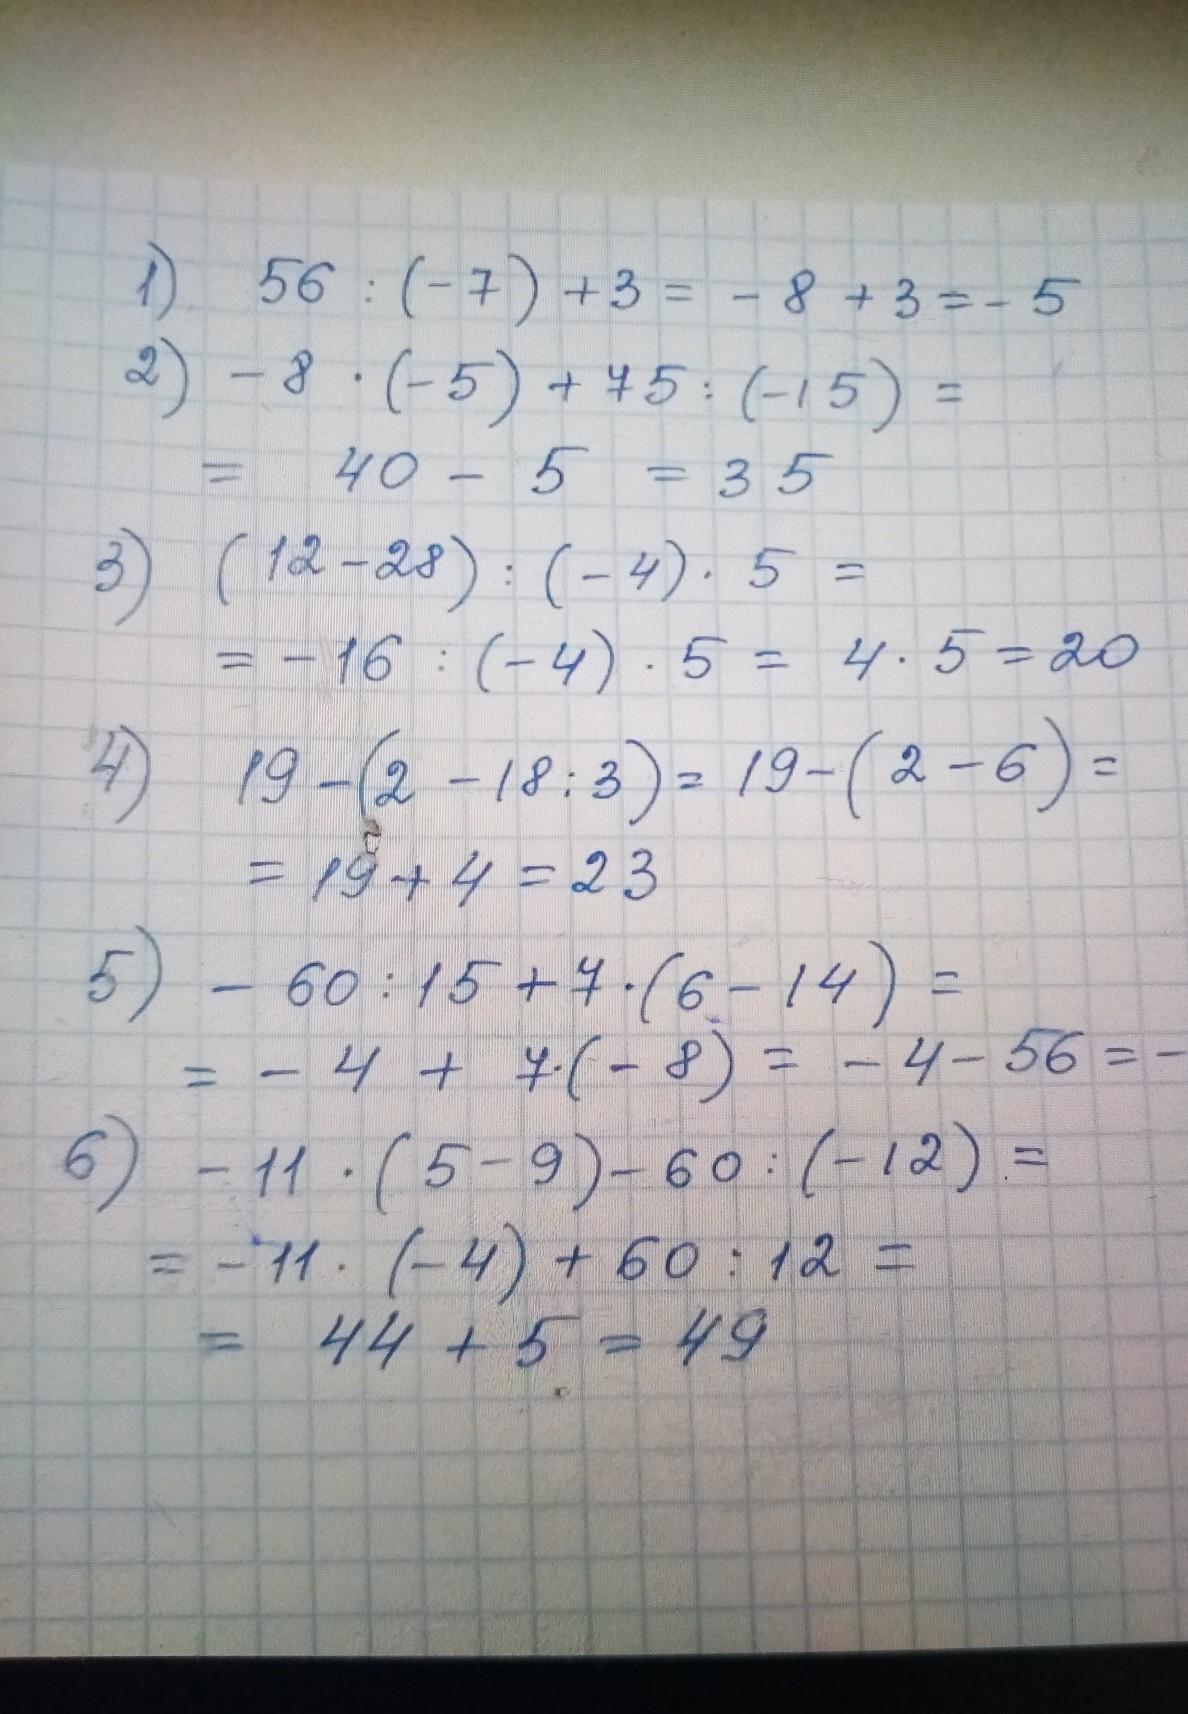 1) 56 : (-7) + 3 = - 8 + 3 = - 5
2) - 8 · (-5) + 75 : (-15) =
= 40 - 5 = 35
3) (12 - 28) : (-4) · 5 =
= - 16 : (-4) · 5 = 4 · 5 = 20
4) 19 - (2 - 18 : 3) = 19 - (2 - 6) =
= 19 + 4 = 23
5) - 60 : 15 + 7 · (6 - 14) =
= - 4 + 7 · (- 8) = - 4 - 56 = -
6) - 11 · (5 - 9) - 60 : (-12) =
= - 11 · (-4) + 60 : 12 =
= 44 + 5 = 49